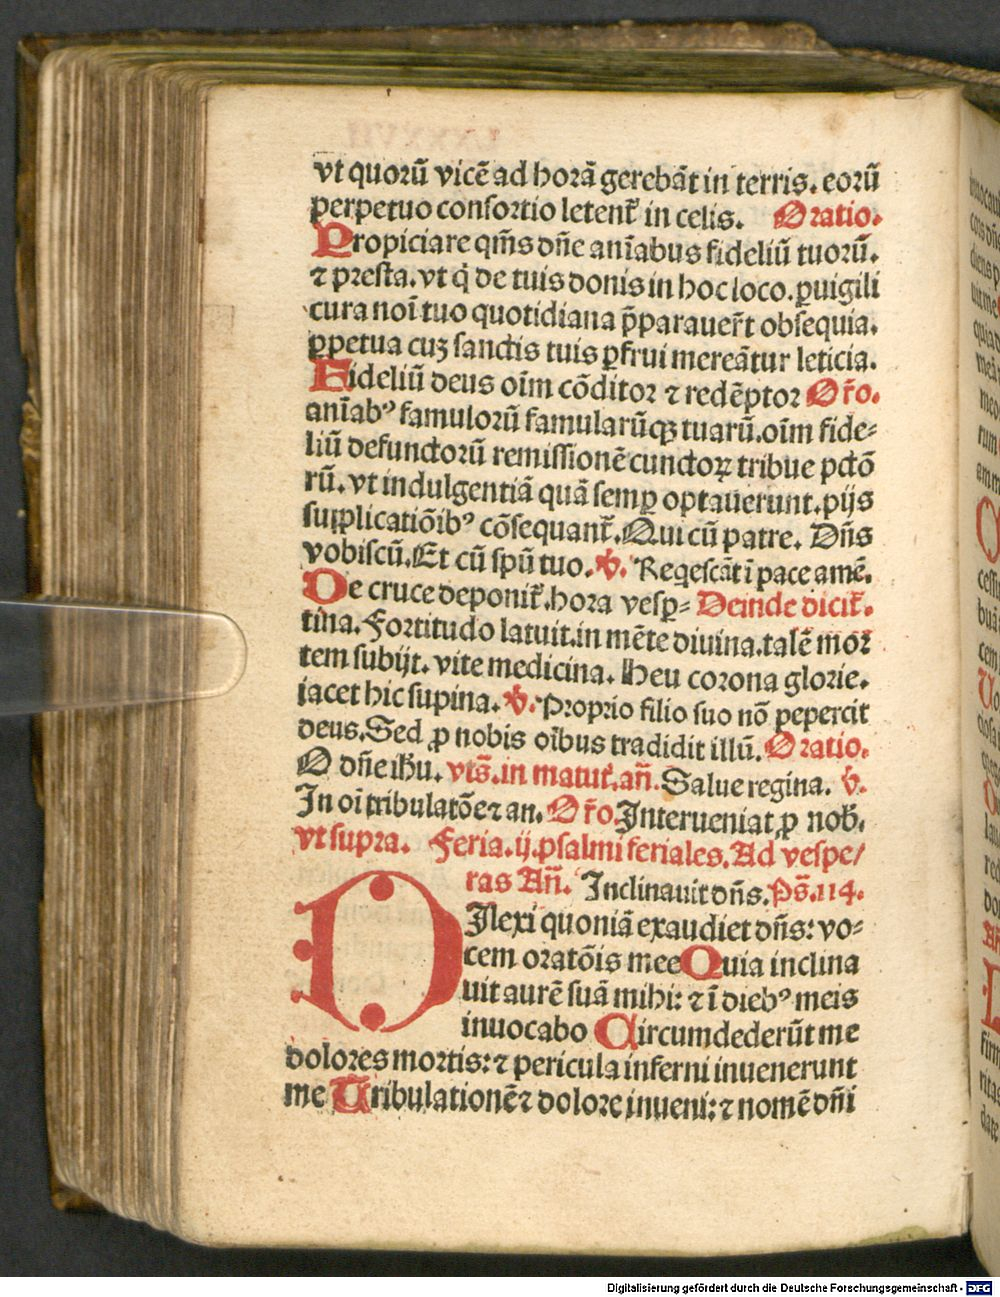 vt quorū vicē ad horā gerebāt in terris. eorū
perpetuo consortio letent̃ in celis. Oratio.
Propiciare qm̄s dñe aīabus fideliū tuorū.
⁊ presta. vt q̇ de tuis donis in hoc loco. ꝑuigili
cura noī tuo quotidiana p̄parauer̃t obsequia.
ꝑpetua cuȝ sanctis tuis ꝑfrui mereātur leticia.
Fideliū deus oīm cōditor ⁊ redēptor Or̃o.
aīab⁹ famulorū famularūqȝ tuarū. oīm fide⸗
liū defunctorū remissionē cunctoꝝ tribue pctō
rū. vt indulgentiā quā semꝑ optauerunt. pijs
supplicatiōib⁹ cōsequant̃. Qui cū patre. Dñs
vobiscū. Et cū spū tuo. ℣. Reqescāt ī pace amē.
De cruce deponit̃. hora vesꝑ⸗ Deinde dicit̃.
tina. Fortitudo latuit. in mēte diuina. talē mor
tem subijt. vite medicina. Heu corona glorie.
iacet hic supina. ℣. Proprio filio suo nō pepercit
deus. Sed ꝓ nobis oībus tradidit illū. Oratio.
O dñe ihu. vts̄. in matut̃. añ. Salue regina. ℣.
In oī tribulatōe ⁊ an. Or̃o. Interueniat ꝓ nob̃.
vt supra. Feria. ij. psalmi feriales. Ad vespe/
ras Añ. Inclinauit dñs. Ps̄. 114.
DIlexi quoniā exaudiet dñs: vo⸗
cem oratōis mee Quia inclina
uit aurē suā mihi: ⁊ ī dieb⁹ meis
inuocabo Circumdederūt me
dolores mortis: ⁊ pericula inferni inuenerunt
me Tribulationē ⁊ dolore inueni: ⁊ nomē dñi
Digitalisierung gefördert durch die Deutsche Forschungsgemeinschaft - DFG